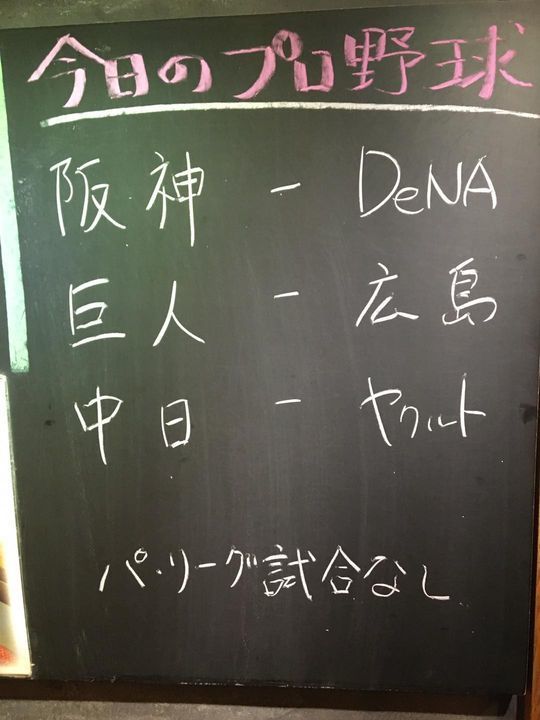 今日のプロ野球
阪神 - DeNA
巨人 - 広島
中日 - ヤクルト
パ・リーグ試合なし